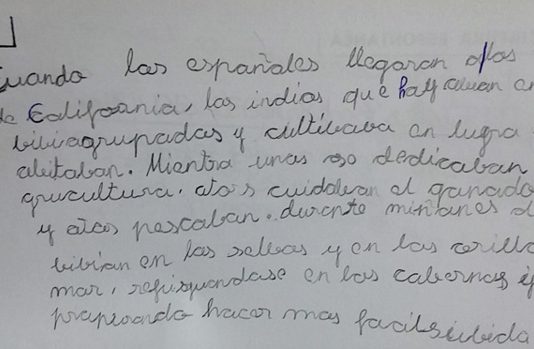 Cuando los españoles llegaron a los
de California, los indios que hay aluan en
bibiagrupadas y cultibaba en lugra
abitaban. Mientra unas so dedicaban
grucultura. otos cuidaban el ganado
y otos pescaban. durante mintanes d
bibian en las selbas y en las orillo
mar, refigundose en las cabernas y
praperando hacer mas facil su bida